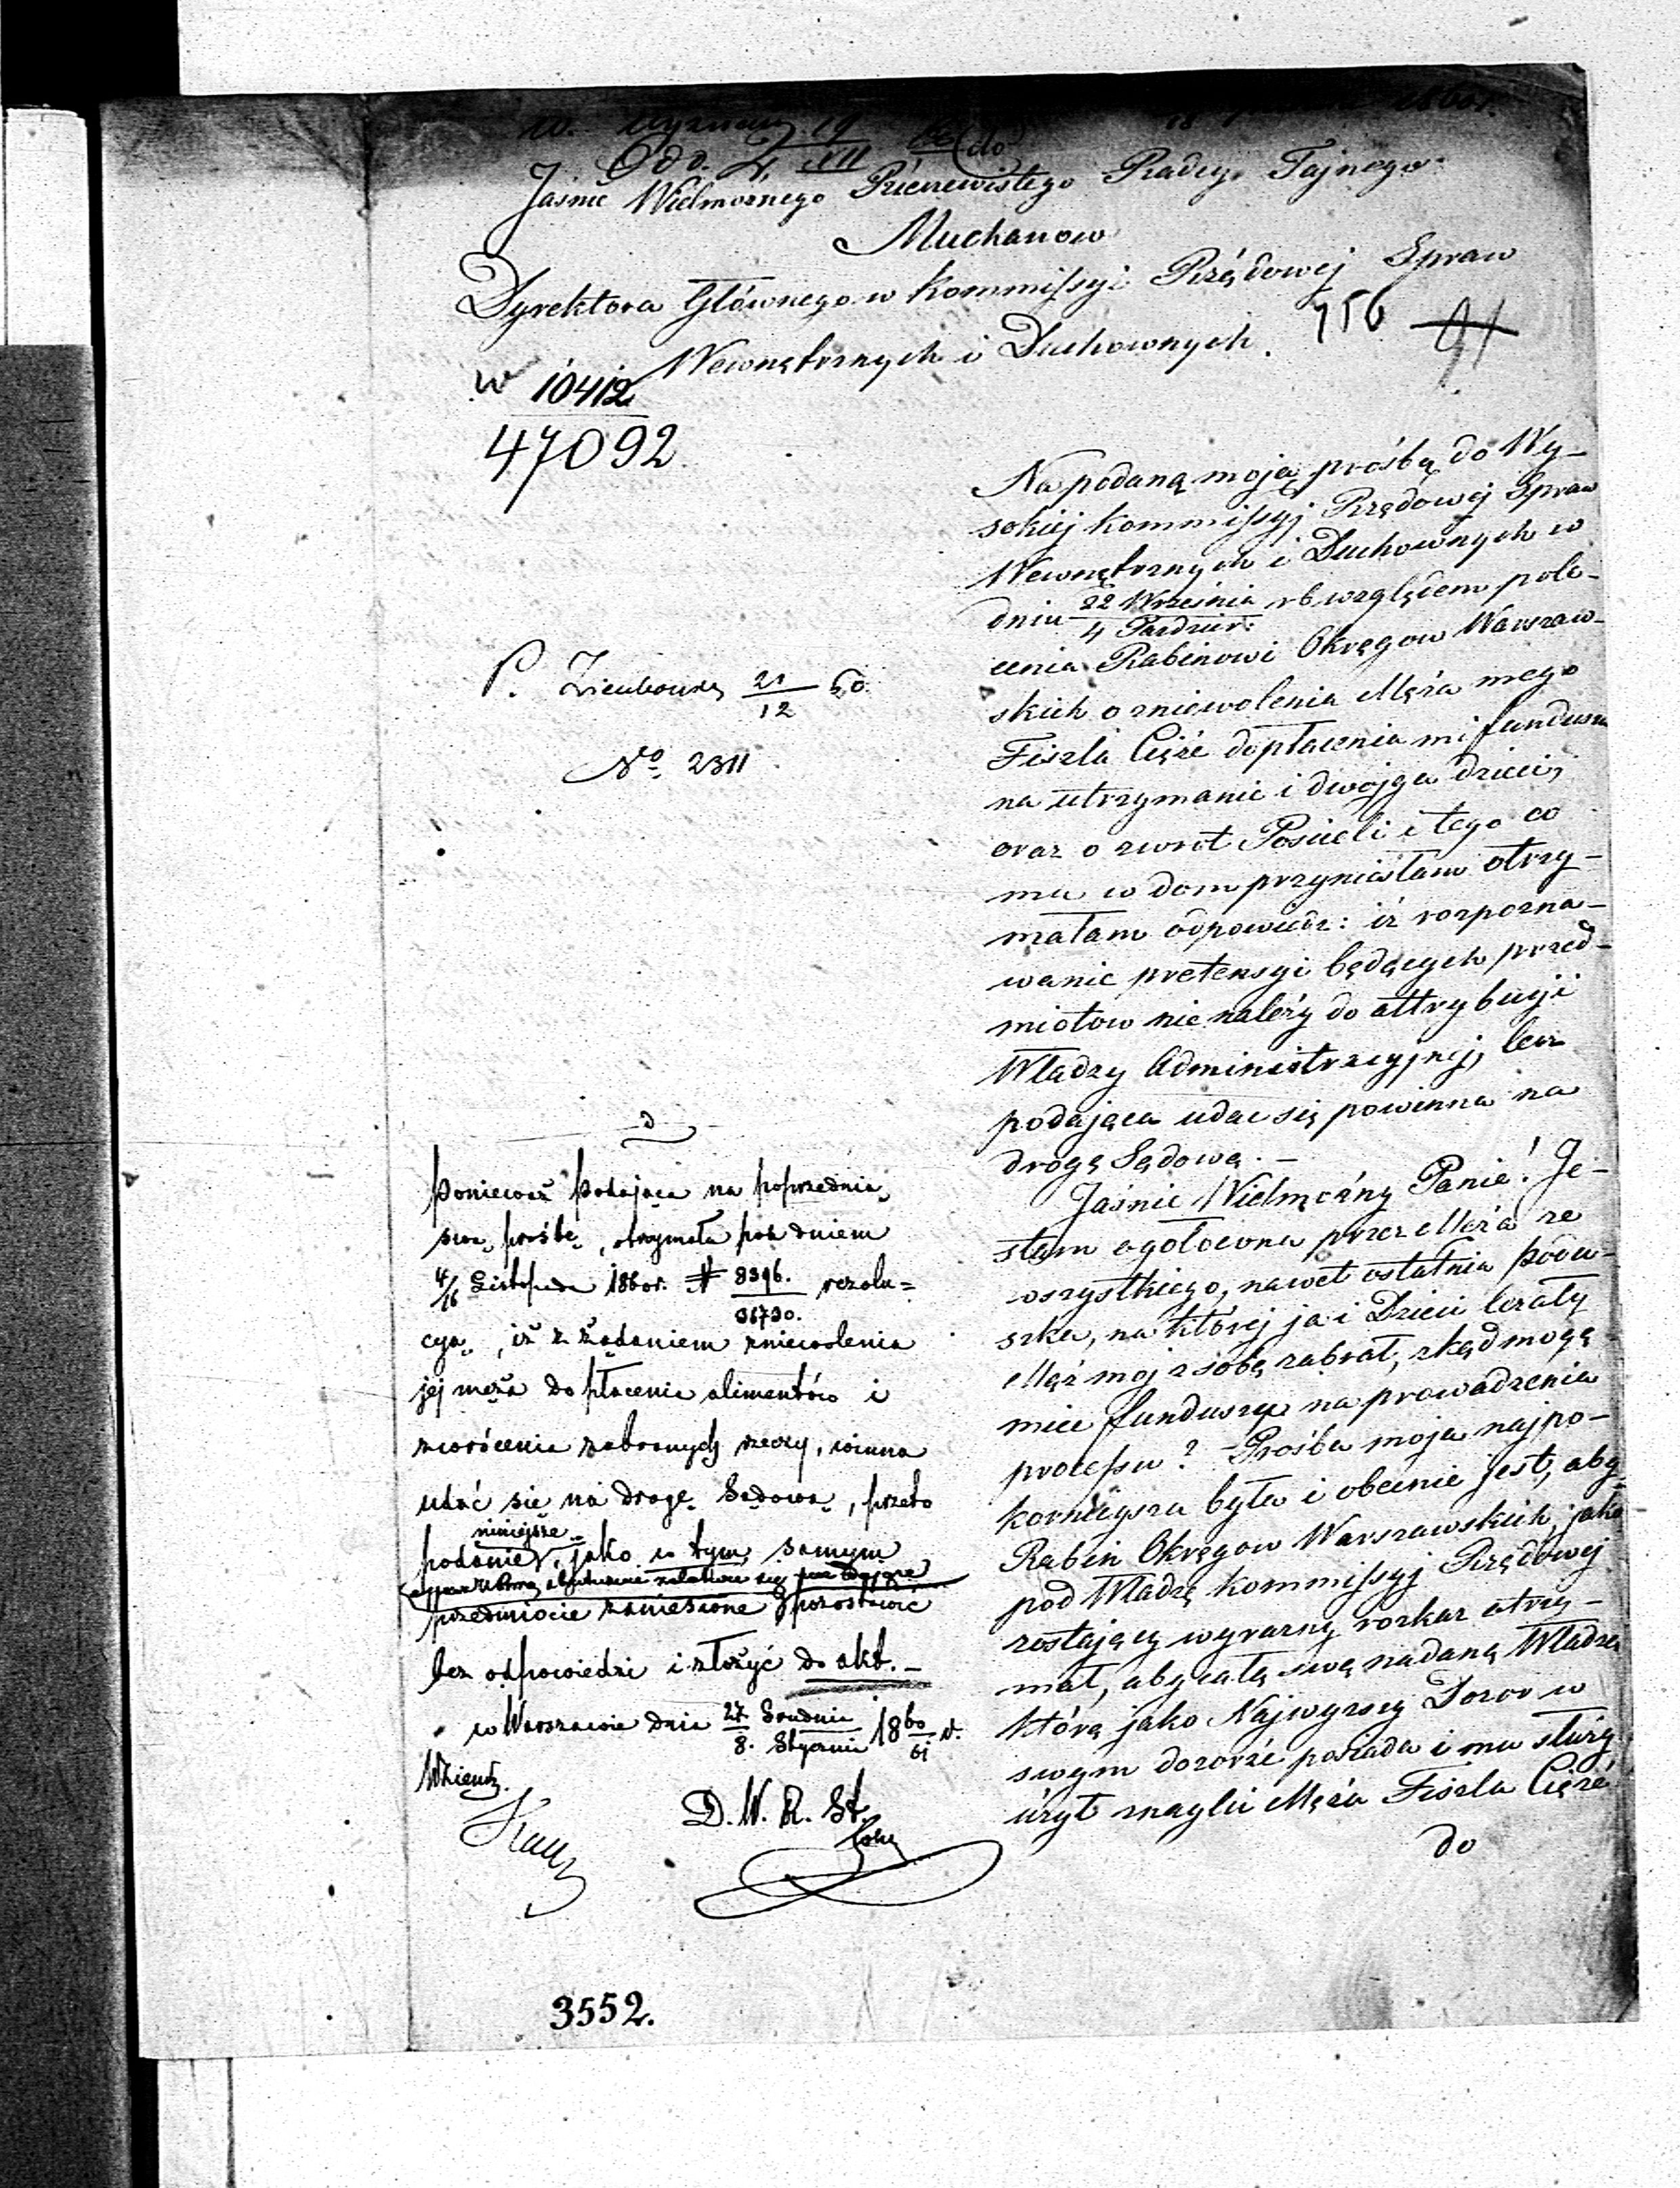 W. Wyznań 19
Odd. 2, XII (do)
18 1860 r.
Jaśnie Wielmożnego Rzeczewistego Radcy Tajnego
Muchanow
Dyrektora Głównego w Kommissyi Rządowej Spraw
Wewnętrznych i Duchownych.
756 91
W 10412
47092
Na podaną moją prośbą do Wy-
sokiej Kommissyj Rządowej Spraw
Wewnętrznych i Duchownych w
dniu 22 Września / 4 Pazdzier: rb względem pole-
cenia Rabinowi Okręgow Warszaw-
skich o zniewolenia Męża mego
Fiszla Ciężé do płacenia mi fundusu
na utrzymanie i dwojga dzieci,
oraz o zwrot Poscieli i tego co
mu w dom przyniosłam otrzy-
małam odpowiedz: iż rozpozna-
wanie pretensyi będących przed-
miotow nie należy do attrybucyi
Władzy Administracyjnej, lecz
podająca udac się powinna na
drogę Sądową. —
Jaśnie Wielmożny Panie! Je-
stem ogołocona przez Męża ze
wszystkiego, nawet ostatnia podu-
szka, na której ja i Dzieci leżały
Mąż moj z sobą zabrał, zkąd mogę
miec funduszu na prowadzenia
procesu? Prośba moja najpo-
korniejsza była i obecnie jest, aby
Rabin Okręgow Warszawskich, jako
pod Władzę Kommissyj Rządowej
zostający wyrazny rozkaz otrzy-
mał, aby całą swą nadaną Władzę
którą jako Najwyzszy Dozor w
swym dozorze posiada i mu służy
użył znaglić Męża Fiszla Ciężé
do
P. Ziembowsk 21/12 60
No. 2311
D
Ponieważ podająca na poprzednią
swą prośbę, otrzymała pod dniem
4/16 Listopada 1860 r. # 8396. / 36730. rezolu=
cyą, iż z żądaniem zniewolenia
jej męża do płacenia alimentów i
zwrócenia zabranych rzeczy, winna
udać się na drogę Sądową, przeto
niniejsze
podanie, jako w tym samym
przedmiocie zaniesione pozostawić
bez odpowiedzi i złożyć do akt. —
w Warszawie dnia 27 Grudnia / 8. Stycznia 18 60/61 r.
D. W. R. St.
3552.